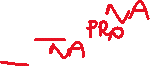 NA
PRO
NA